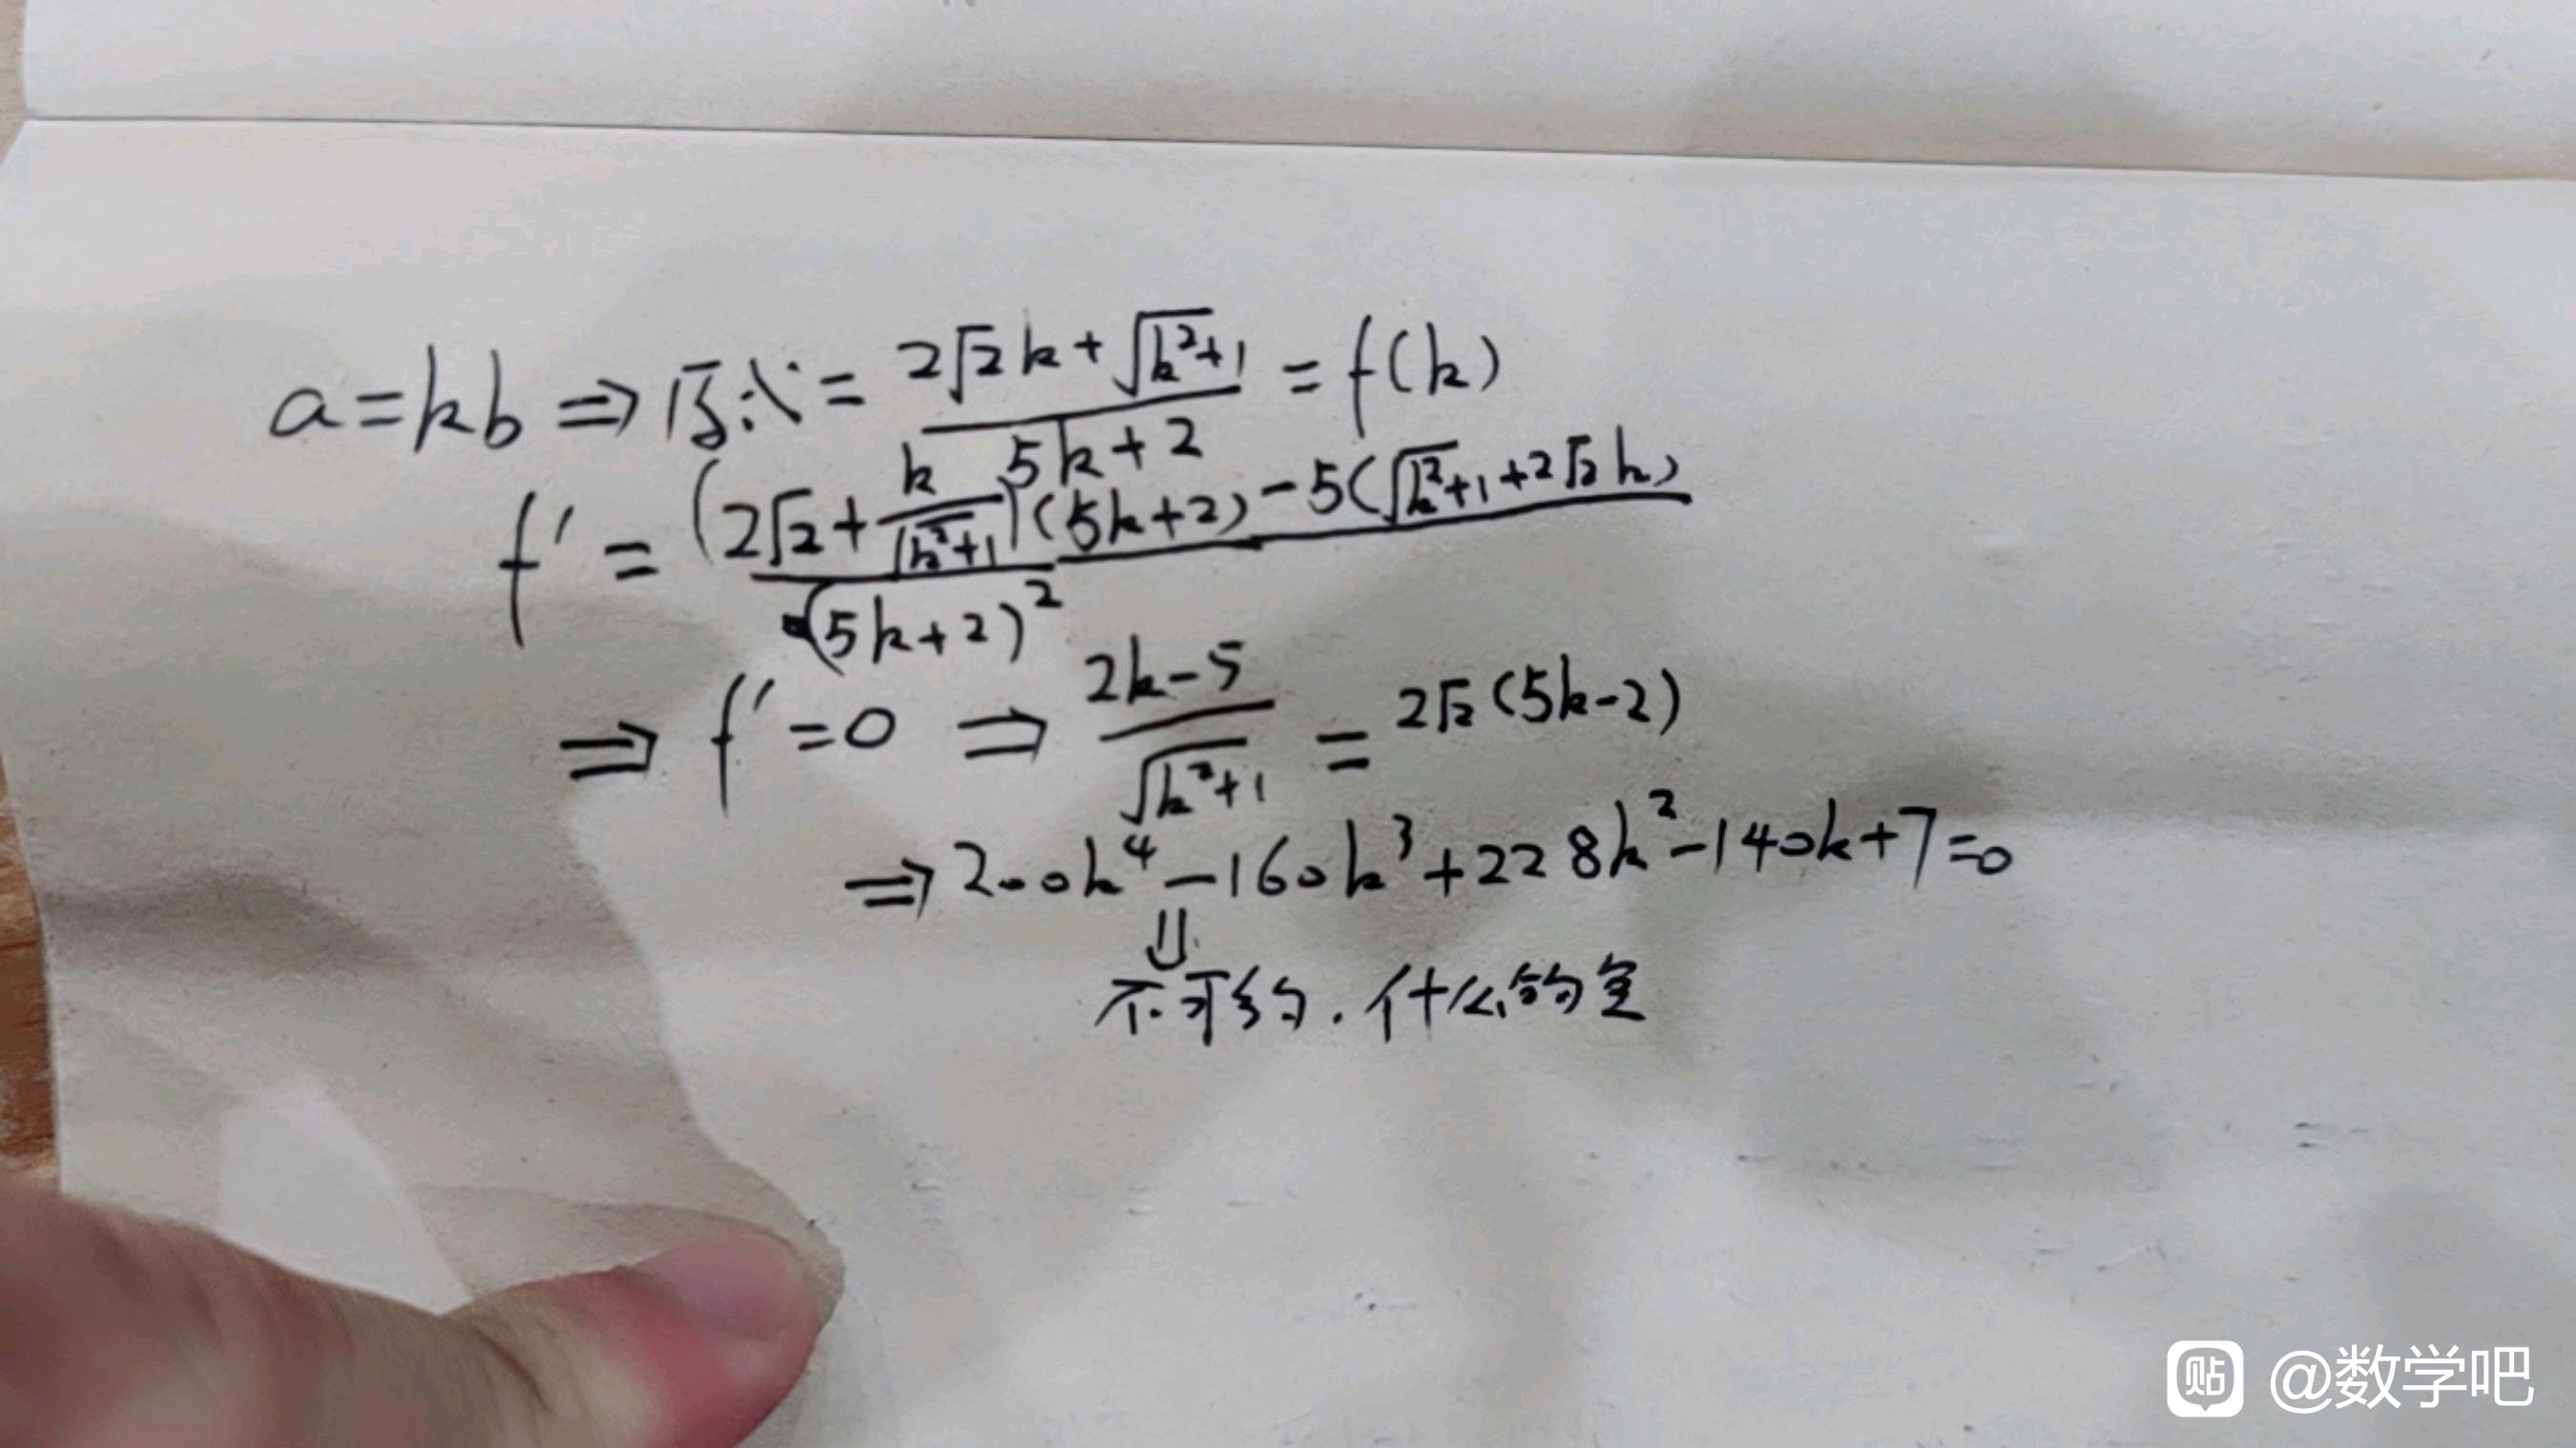 a=kb ⇒ 原式 = (2√2k+√(k²+1))/(5k+2) = f(k)
f' = ((2√2+k/√(k²+1))(5k+2)-5(√(k²+1)+2√2k))/(5k+2)²
⇒ f'=0 ⇒ (2k-5)/√(k²+1) = 2√2(5k-2)
⇒ 200k⁴-160k³+228k²-140k+7=0
⇓
不可约.什么的
贴 @数学吧